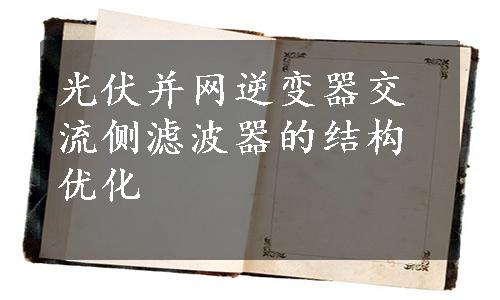 光伏并网逆变器交
流侧滤波器的结构
优化